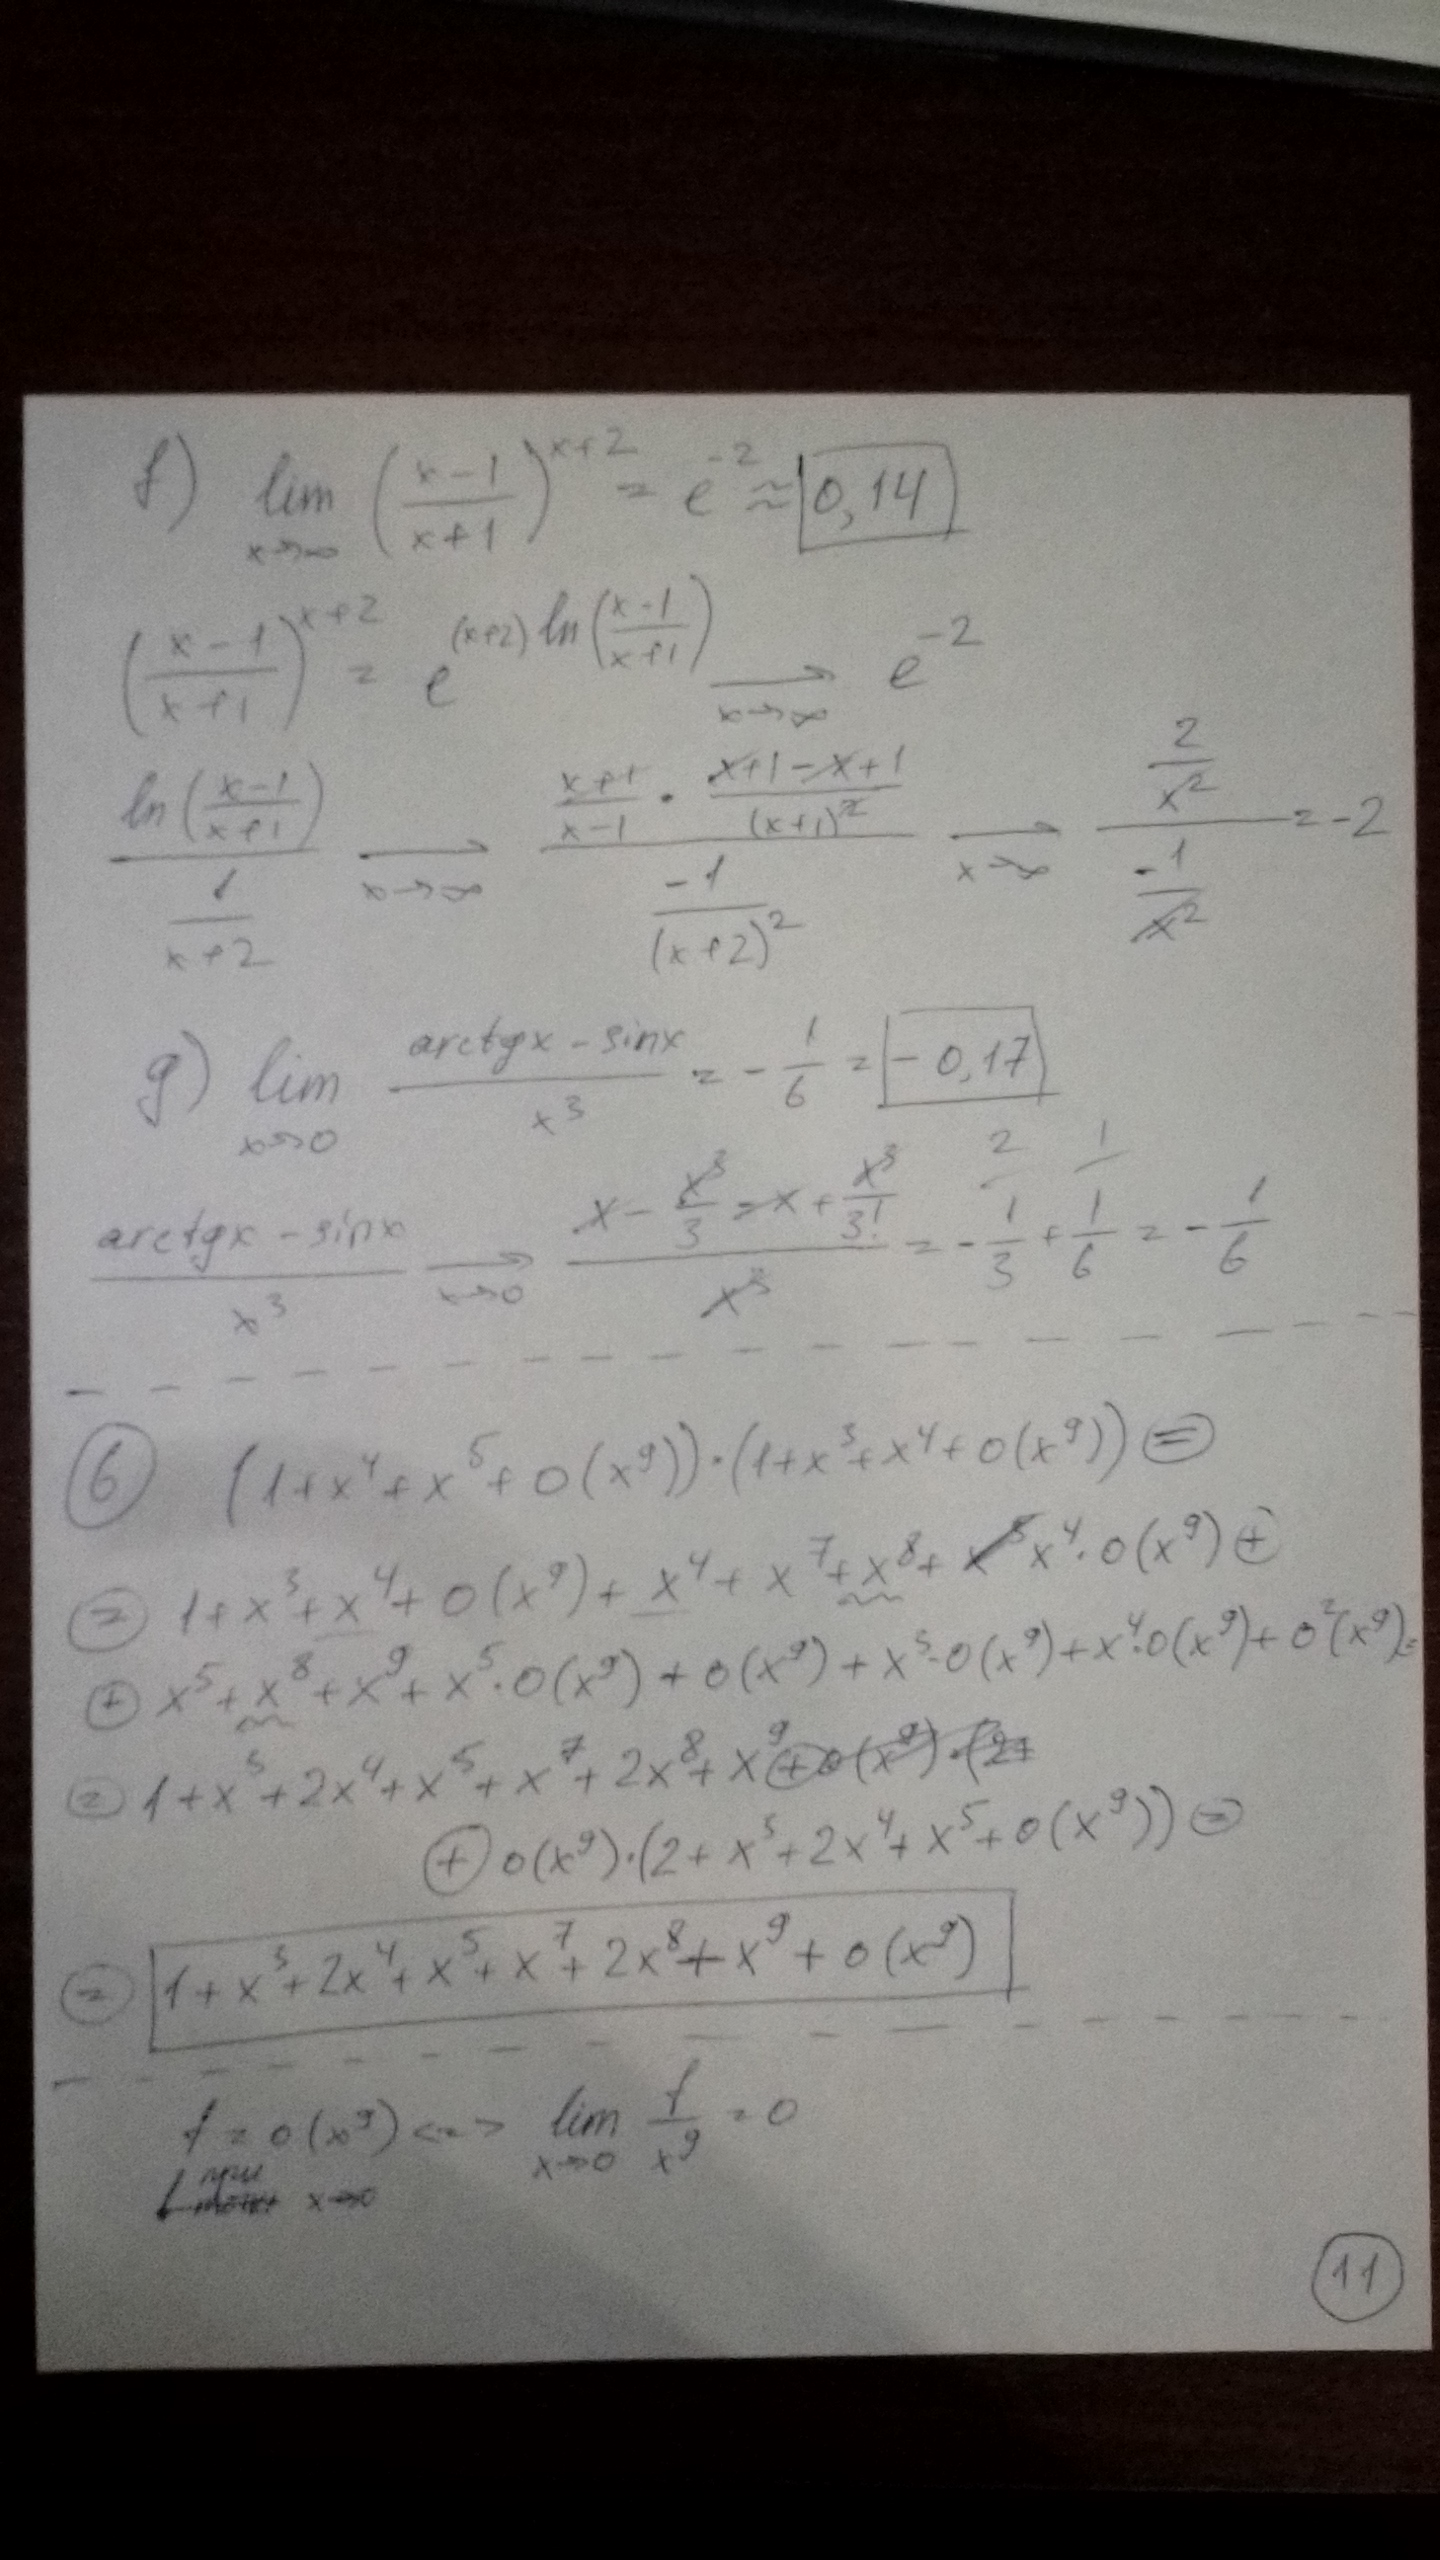 f) lim x→∞ ((x-1)/(x+1))^(x+2) = e^-2 ≈ 0,14
((x-1)/(x+1))^(x+2) = e^((x+2) ln((x-1)/(x+1))) → x→∞ e^-2
ln((x-1)/(x+1)) / (1/(x+2)) → x→∞ ((x+1)/(x-1) · (x+1-x+1)/(x+1)^2) / (-1/(x+2)^2) → x→∞ (2/x^2) / (-1/x^2) = -2
g) lim x→0 (arctgx - sinx)/x^3 = -1/6 = -0,17
(arctgx - sinx)/x^3 → x→0 (x - x^3/3 - x + x^3/3!)/x^3 = -1/3 + 1/6 = -1/6
6 (1+x^4+x^5+o(x^9))·(1+x^3+x^4+o(x^9)) =
= 1+x^3+x^4+o(x^9)+x^4+x^7+x^8+x^4·o(x^9) +
+ x^5+x^8+x^9+x^5·o(x^9)+o(x^9)+x^3·o(x^9)+x^4·o(x^9)+o^2(x^9) =
= 1+x^3+2x^4+x^5+x^7+2x^8+x^9
+ o(x^9)·(2+x^3+2x^4+x^5+o(x^9)) =
= 1+x^3+2x^4+x^5+x^7+2x^8+x^9+o(x^9)
f = o(x^9) <=> lim x→0 f/x^9 = 0
при x→0
11